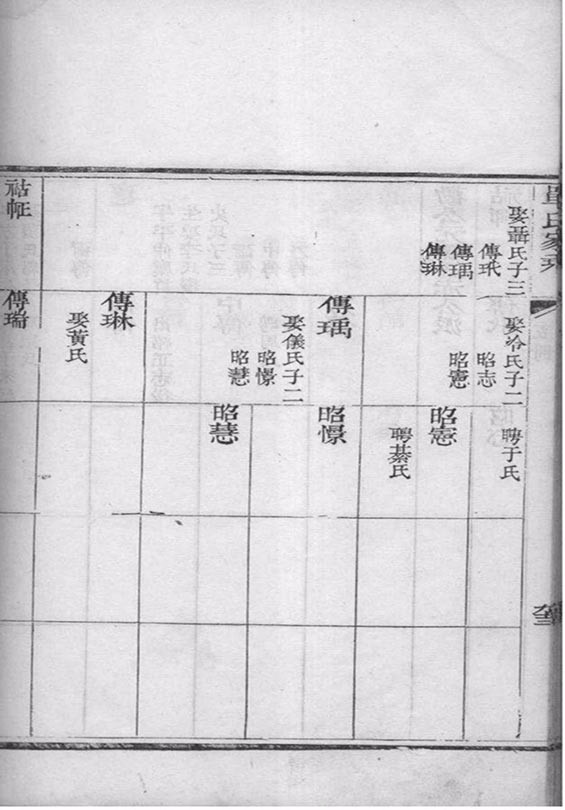 娶聶氏子三
傳玳
傳瑀
傳琳
祜怔
娶冷氏子二
昭志
昭憲
傳瑀
娶儀氏子二
昭憬
昭慧
傳琳
娶黃氏
傳瑞
聘于氏
昭憲
聘綦氏
昭憬
昭慧